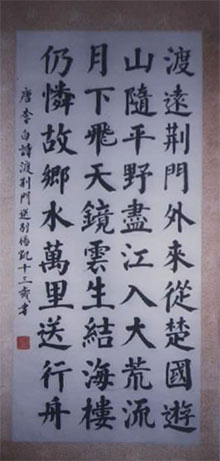 渡遠荆門外來從楚國遊
山隨平野盡江入大荒流
月下飛天鏡雲生結海樓
仍憐故鄉水萬里送行舟
唐李白詩渡荆門送别楊凱十三歲書